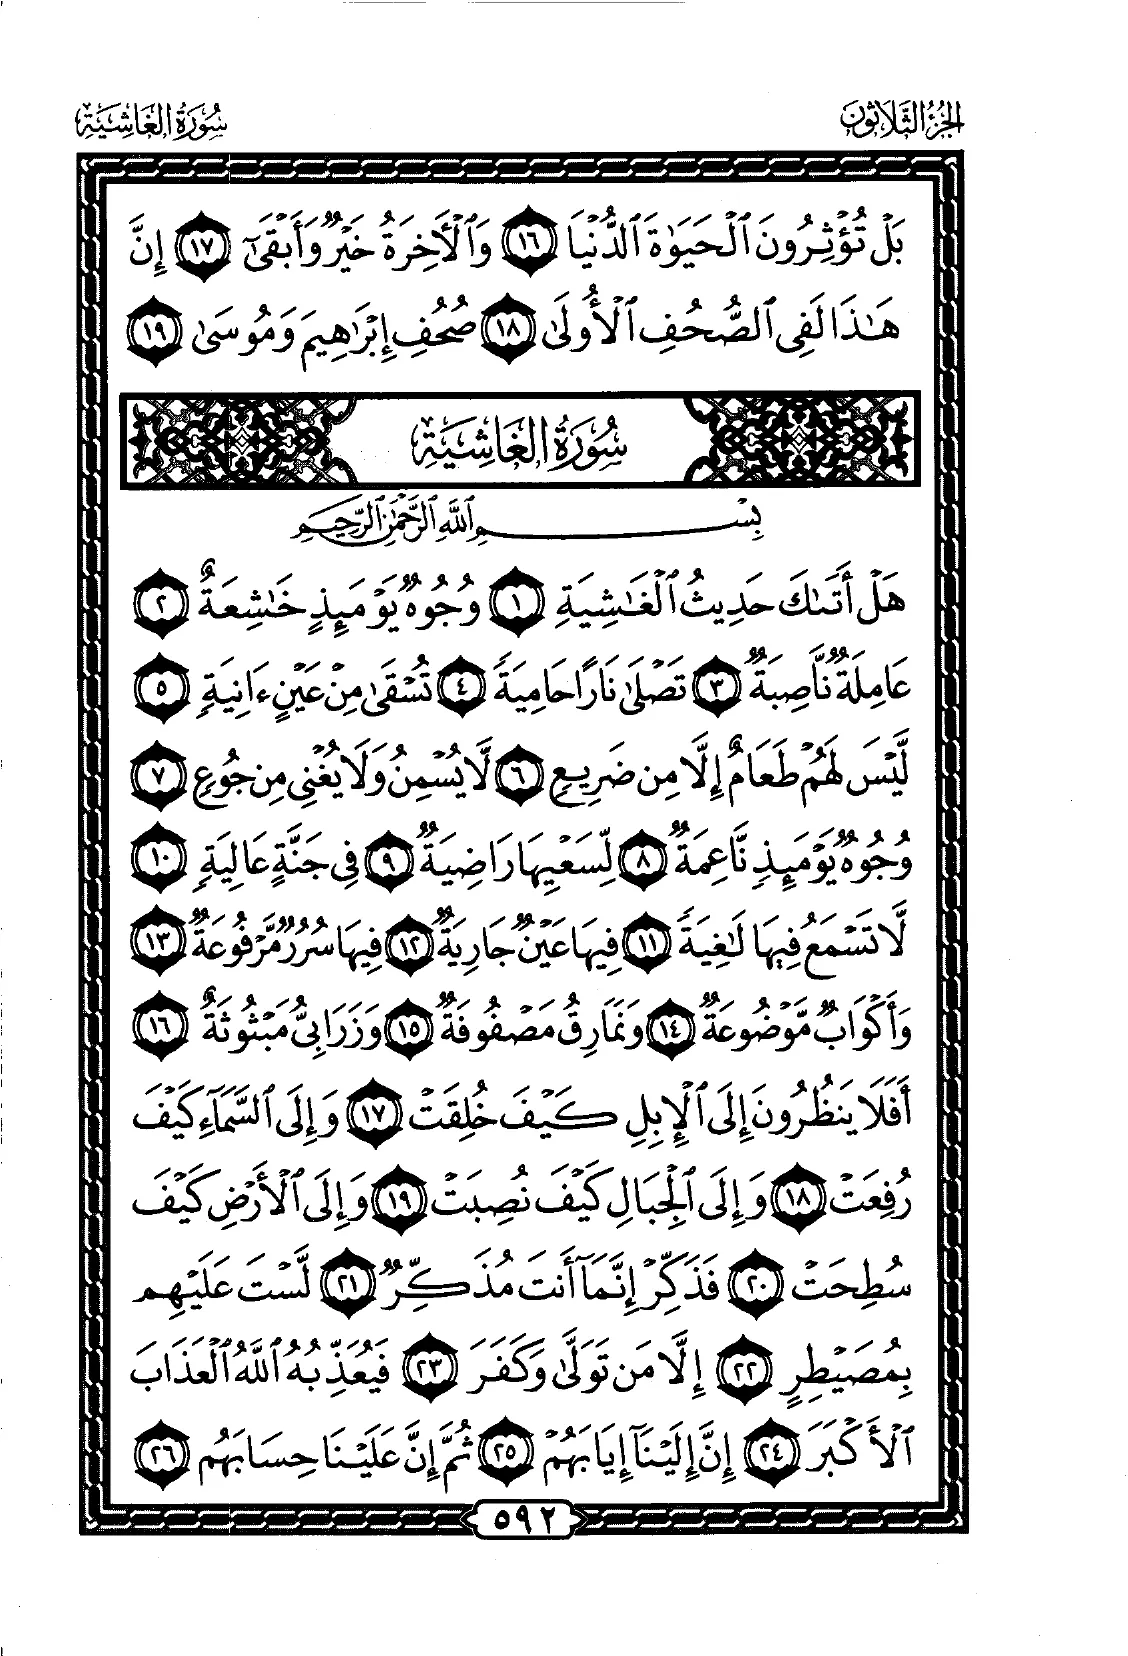 الجزء الثلاثون
سورة الغاشية
بَلْ تُؤْثِرُونَ ٱلْحَيَوٰةَ ٱلدُّنْيَا ١٦ وَٱلْأَخِرَةُ خَيْرٌ وَأَبْقَىٰٓ ١٧ إِنَّ
هَـٰذَا لَفِى ٱلصُّحُفِ ٱلْأُولَىٰ ١٨ صُحُفِ إِبْرَٰهِيمَ وَمُوسَىٰ ١٩
سُورَةُ الغَاشِيَةِ
بِسْمِ ٱللَّهِ ٱلرَّحْمَٰنِ ٱلرَّحِيمِ
هَلْ أَتَىٰكَ حَدِيثُ ٱلْغَـٰشِيَةِ ١ وُجُوهٌ يَوْمَئِذٍ خَـٰشِعَةٌ ٢
عَامِلَةٌ نَّاصِبَةٌ ٣ تَصْلَىٰ نَارًا حَامِيَةً ٤ تُسْقَىٰ مِنْ عَيْنٍ ءَانِيَةٍ ٥
لَّيْسَ لَهُمْ طَعَامٌ إِلَّا مِن ضَرِيعٍ ٦ لَّا يُسْمِنُ وَلَا يُغْنِى مِن جُوعٍ ٧
وُجُوهٌ يَوْمَئِذٍ نَّاعِمَةٌ ٨ لِّسَعْيِهَا رَاضِيَةٌ ٩ فِى جَنَّةٍ عَالِيَةٍ ١٠
لَّا تَسْمَعُ فِيهَا لَـٰغِيَةً ١١ فِيهَا عَيْنٌ جَارِيَةٌ ١٢ فِيهَا سُرُرٌ مَّرْفُوعَةٌ ١٣
وَأَكْوَابٌ مَّوْضُوعَةٌ ١٤ وَنَمَارِقُ مَصْفُوفَةٌ ١٥ وَزَرَابِىُّ مَبْثُوثَةٌ ١٦
أَفَلَا يَنظُرُونَ إِلَى ٱلْإِبِلِ كَيْفَ خُلِقَتْ ١٧ وَإِلَى ٱلسَّمَآءِ كَيْفَ
رُفِعَتْ ١٨ وَإِلَى ٱلْجِبَالِ كَيْفَ نُصِبَتْ ١٩ وَإِلَى ٱلْأَرْضِ كَيْفَ
سُطِحَتْ ٢٠ فَذَكِّرْ إِنَّمَآ أَنتَ مُذَكِّرٌ ٢١ لَّسْتَ عَلَيْهِم
بِمُصَيْطِرٍ ٢٢ إِلَّا مَن تَوَلَّىٰ وَكَفَرَ ٢٣ فَيُعَذِّبُهُ ٱللَّهُ ٱلْعَذَابَ
ٱلْأَكْبَرَ ٢٤ إِنَّ إِلَيْنَآ إِيَابَهُمْ ٢٥ ثُمَّ إِنَّ عَلَيْنَا حِسَابَهُم ٢٦
٥٩٢